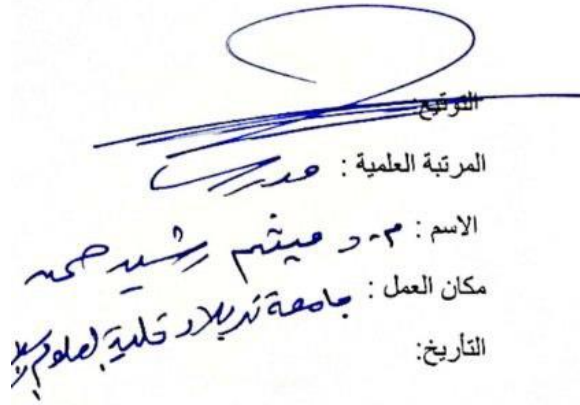 التوقيع:
المرتبة العلمية : مدرس
الاسم : م.د ميثم رشيد حميد
مكان العمل : جامعة كربلاء كلية العلوم
التأريخ: